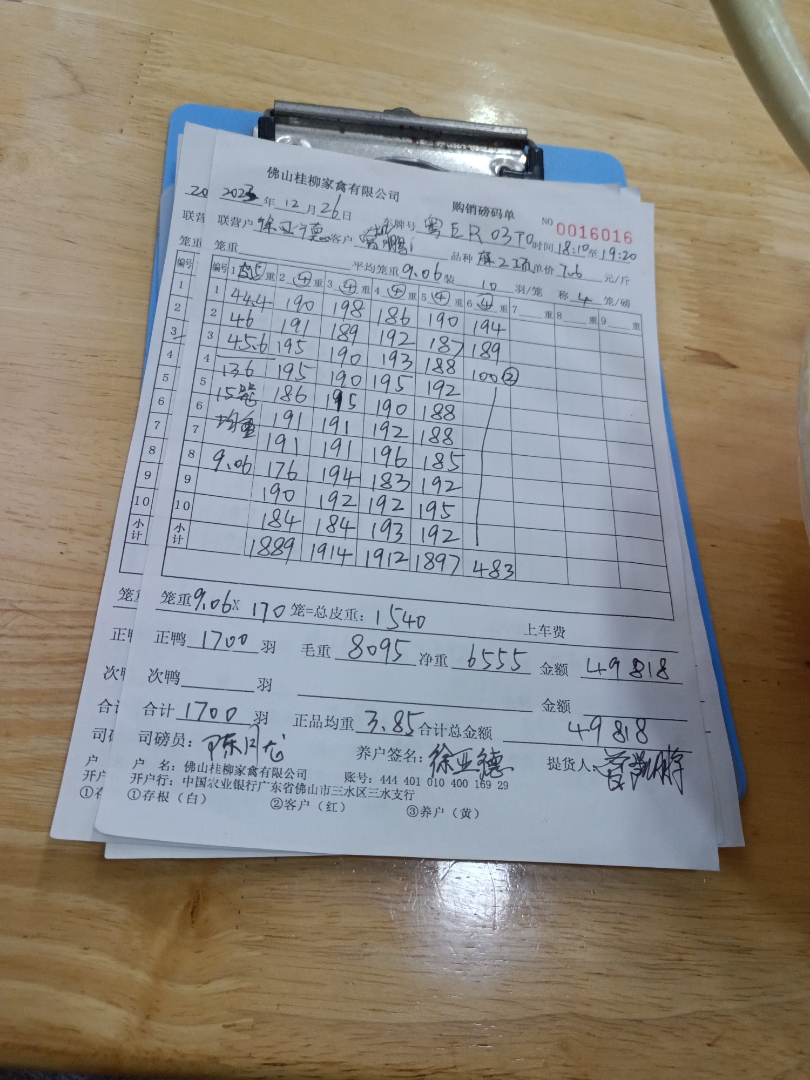 佛山桂柳家禽有限公司 购销磅码单 NO 0016016
2023 年 12 月 26 日 车牌号 粤ER03T0 时间 18:10 至 19:20
联营户 徐亚德 客户 品种 单价 7.6 元/斤
笼重 平均笼重 9.06 装 10 羽/笼 称 4 笼/磅
编号 1 重 2 ④ 重 3 ④ 重 4 ④ 重 5 ④ 重 6 ④ 重 7 重 8 重 9 重
1 44.4 190 198 186 190 194
2 46 191 189 192 187 189
3 45.6 195 190 193 188 100②
4 13.6 195 190 195 192
5 15 186 195 190 188
6 均重 191 191 192 188
7 191 191 196 185
8 9.06 176 194 183 192
9 190 192 192 195
10 184 184 193 192
小计 1889 1914 1912 1897 483
笼重 9.06 X 170 笼=总皮重: 1540 上车费
正鸭 1700 羽 毛重 8095 净重 6555 金额 49818
次鸭 羽 金额
合计 1700 羽 正品均重 3.85 合计总金额 49818
司磅员: 陈月龙 养户签名: 徐亚德 提货人
户 名: 佛山桂柳家禽有限公司 账号: 444 401 010 400 169 29
开户行: 中国农业银行广东省佛山市三水区三水支行
①存根（白） ②客户（红） ③养户（黄）
20
联营
笼重
编号
1
2
3
4
5
6
7
8
9
10
小计
笼重
正鸭
次鸭
合计
司磅
户
开户
①存